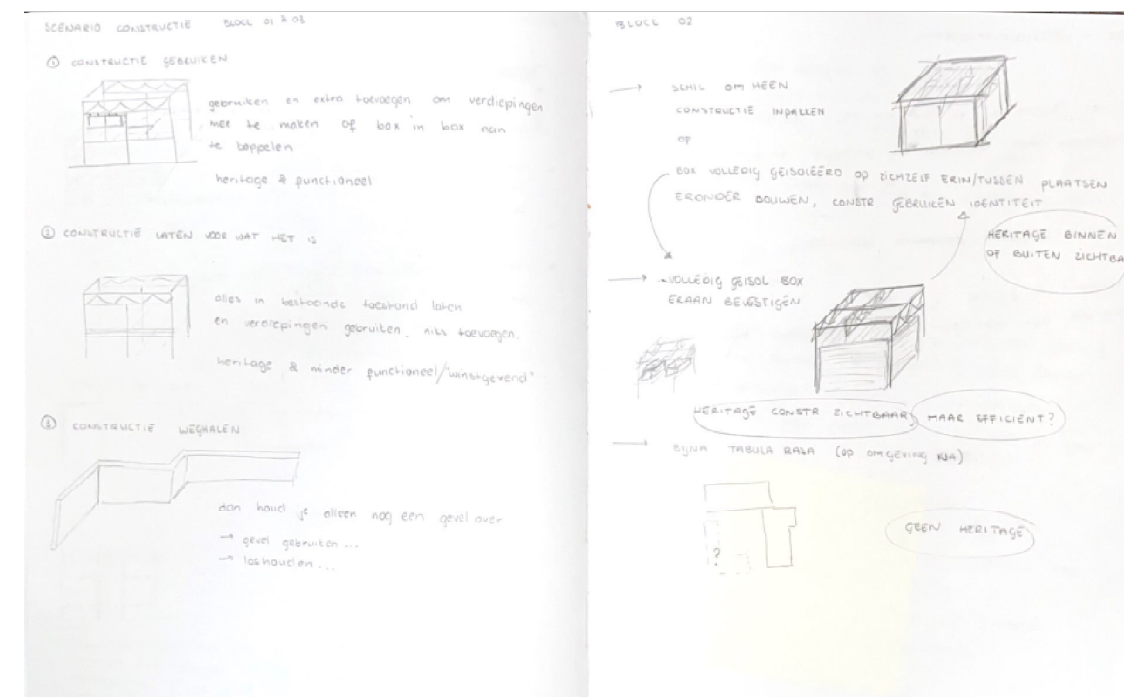 SCENARIO CONSTRUCTIE BLOCK 01 & 03
① CONSTRUCTIE GEBRUIKEN
gebruiken en extra toevoegen om verdiepingen
mee te maken of box in box aan
te koppelen
heritage & functioneel
② CONSTRUCTIE LATEN VOOR WAT HET IS
alles in bestaande toestand laten
en verdiepingen gebruiken, niks toevoegen.
heritage & minder functioneel/"winstgevend"
③ CONSTRUCTIE WEGHALEN
dan houd je alleen nog een gevel over
→ gevel gebruiken ...
→ loshouden ...
BLOCK 02
→ SCHIL OM HEEN
CONSTRUCTIE INPAKKEN
OF
BOX VOLLEDIG GEISOLEERD OP ZICHZELF ERIN/TUSSEN PLAATSEN
ERONDER BOUWEN, CONSTR GEBRUIKEN IDENTITEIT
HERITAGE BINNEN
OF BUITEN ZICHTBA
→ VOLLEDIG GEISOL BOX
ERAAN BEVESTIGEN
HERITAGE CONSTR ZICHTBAAR, MAAR EFFICIENT?
→ BIJNA TABULA RASA (op omgeving NA)
?
GEEN HERITAGE